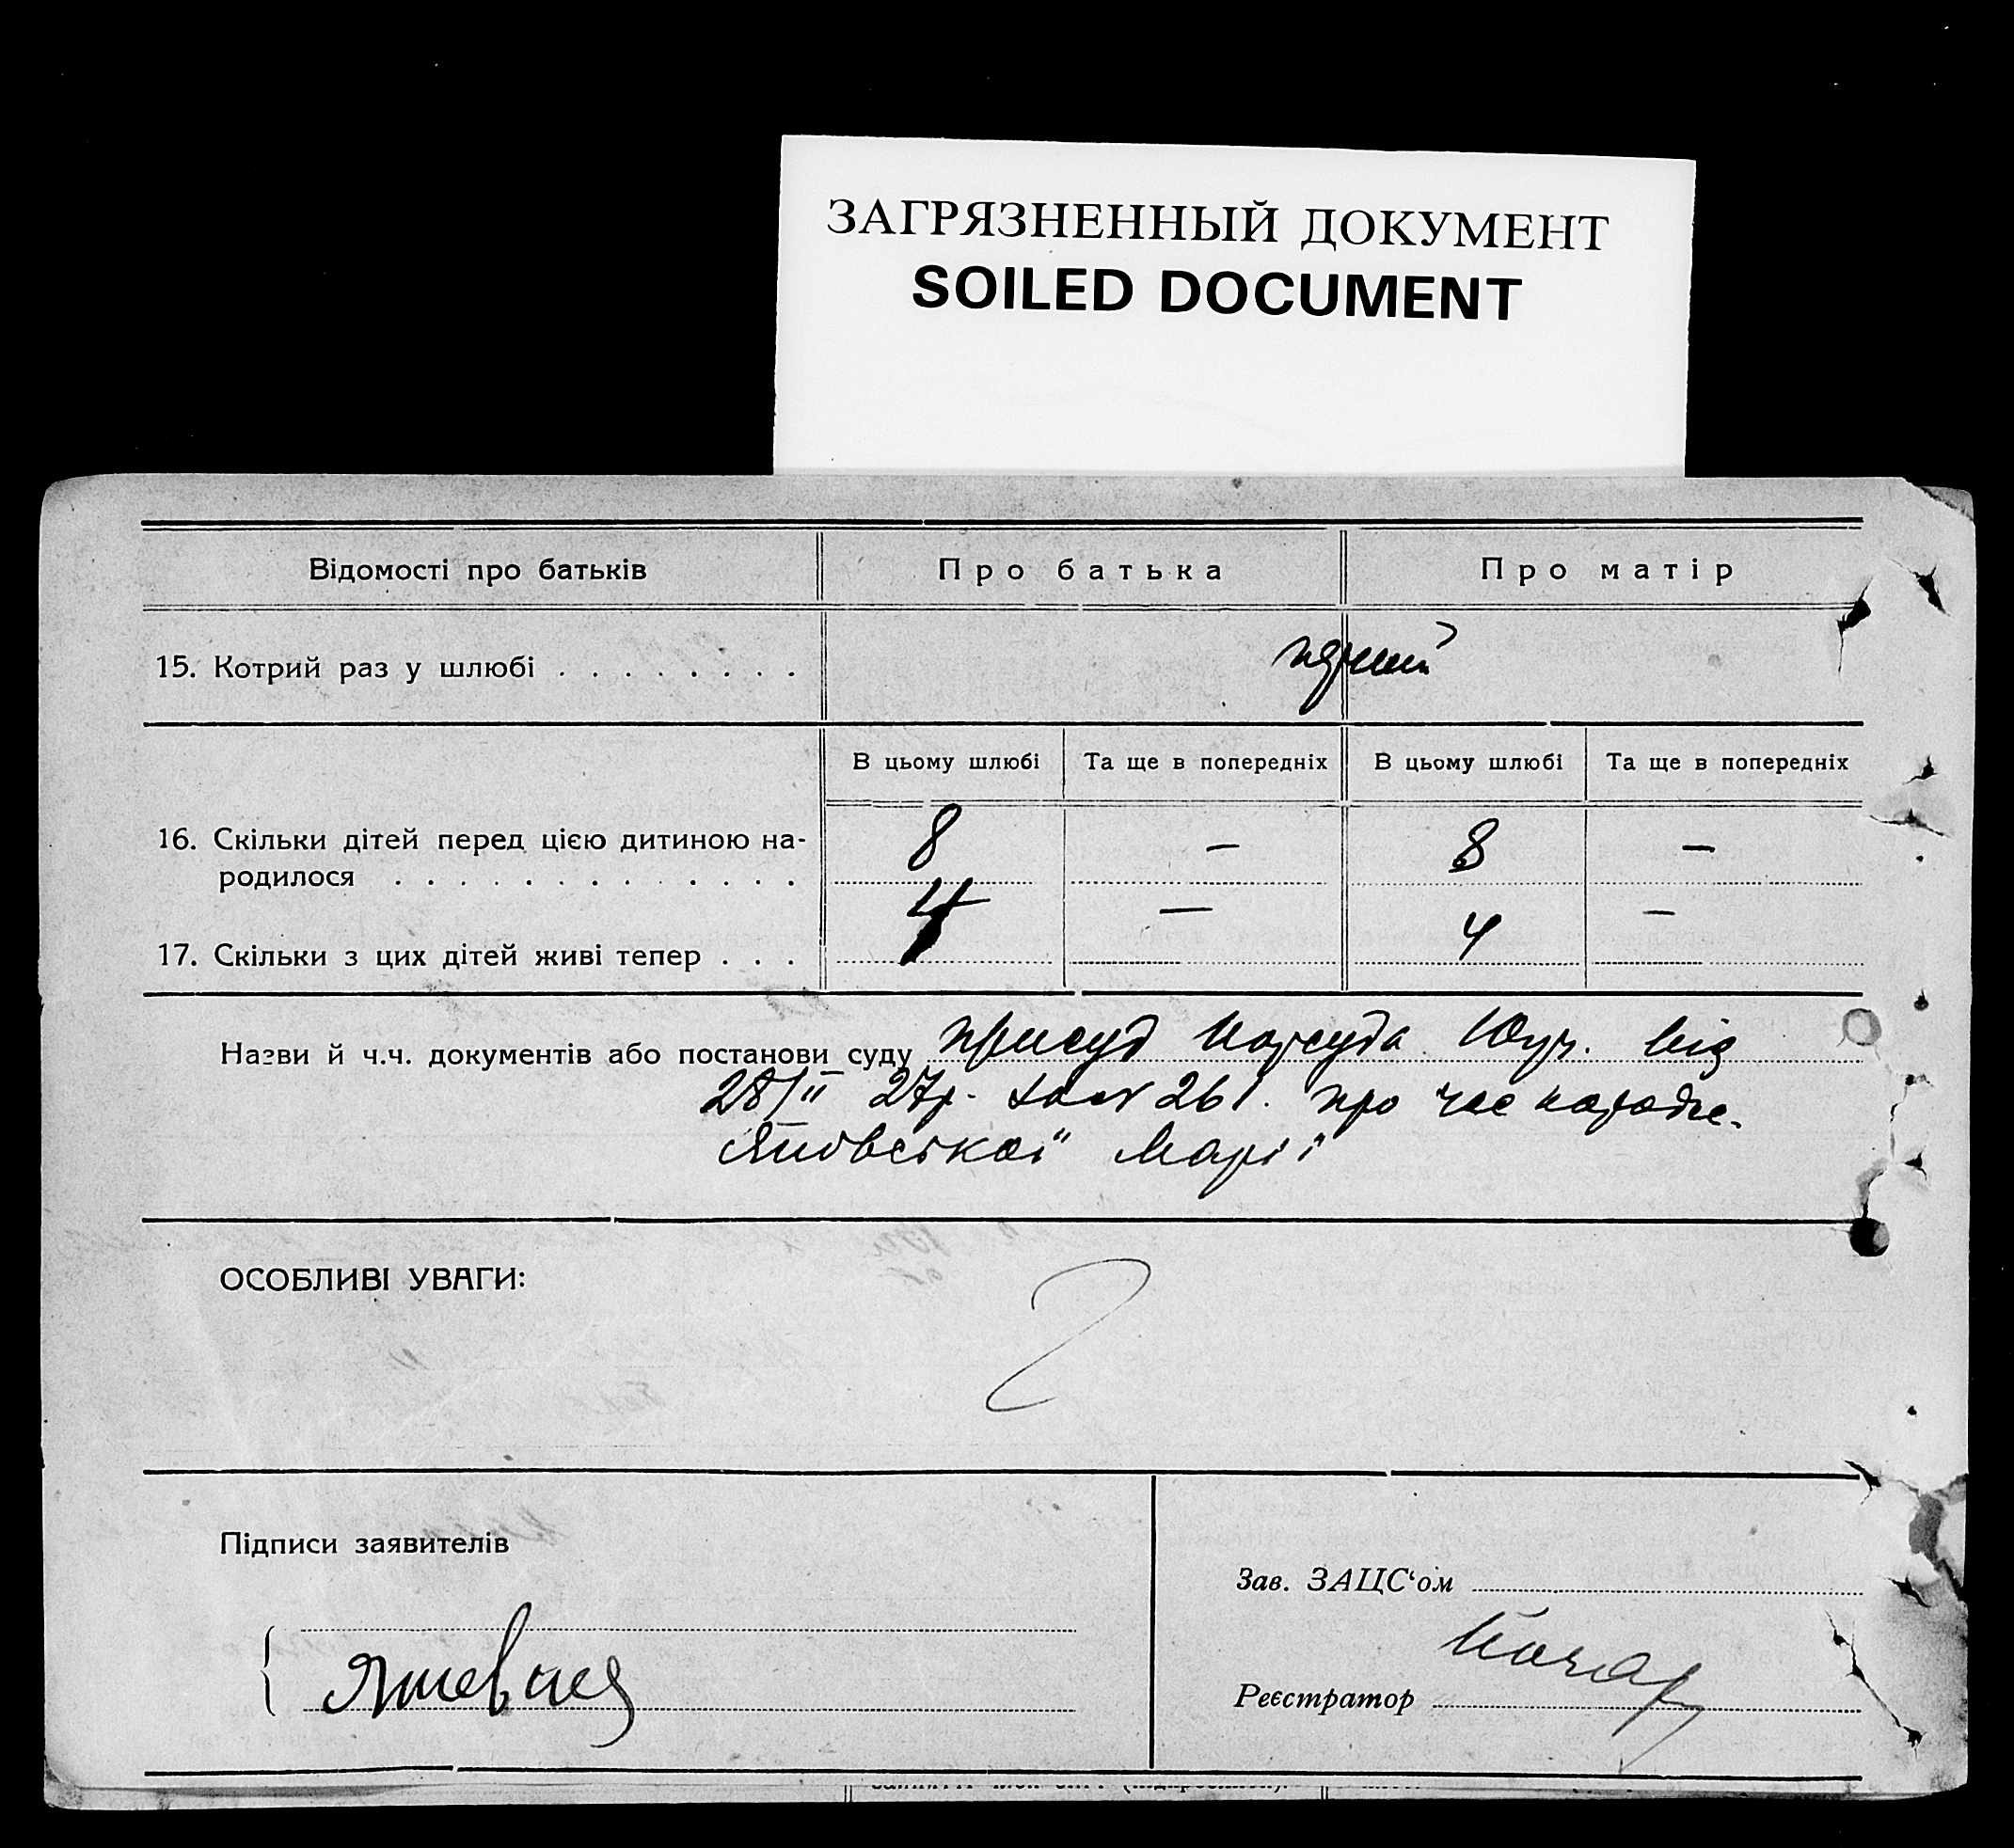 ЗАГРЯЗНЕННЫЙ ДОКУМЕНТ
SOILED DOCUMENT
Відомості про батьків Про батька Про матір
15. Котрий раз у шлюбі . . . . . . . . перший
В цьому шлюбі Та ще в попередніх В цьому шлюбі Та ще в попередніх
16. Скільки дітей перед цією дитиною на- 8 — 8 —
родилося . . . . . . . . . . . . . .
17. Скільки з цих дітей живі тепер . . . 4 — 4 —
Назви й ч.ч. документів або постанови суду присуд Нарсуда від
28/II 27р. 261. про час народж.
Яновської Марії
ОСОБЛИВІ УВАГИ:
2
Підписи заявителів
Зав. ЗАЦС‘ом
Реєстратор